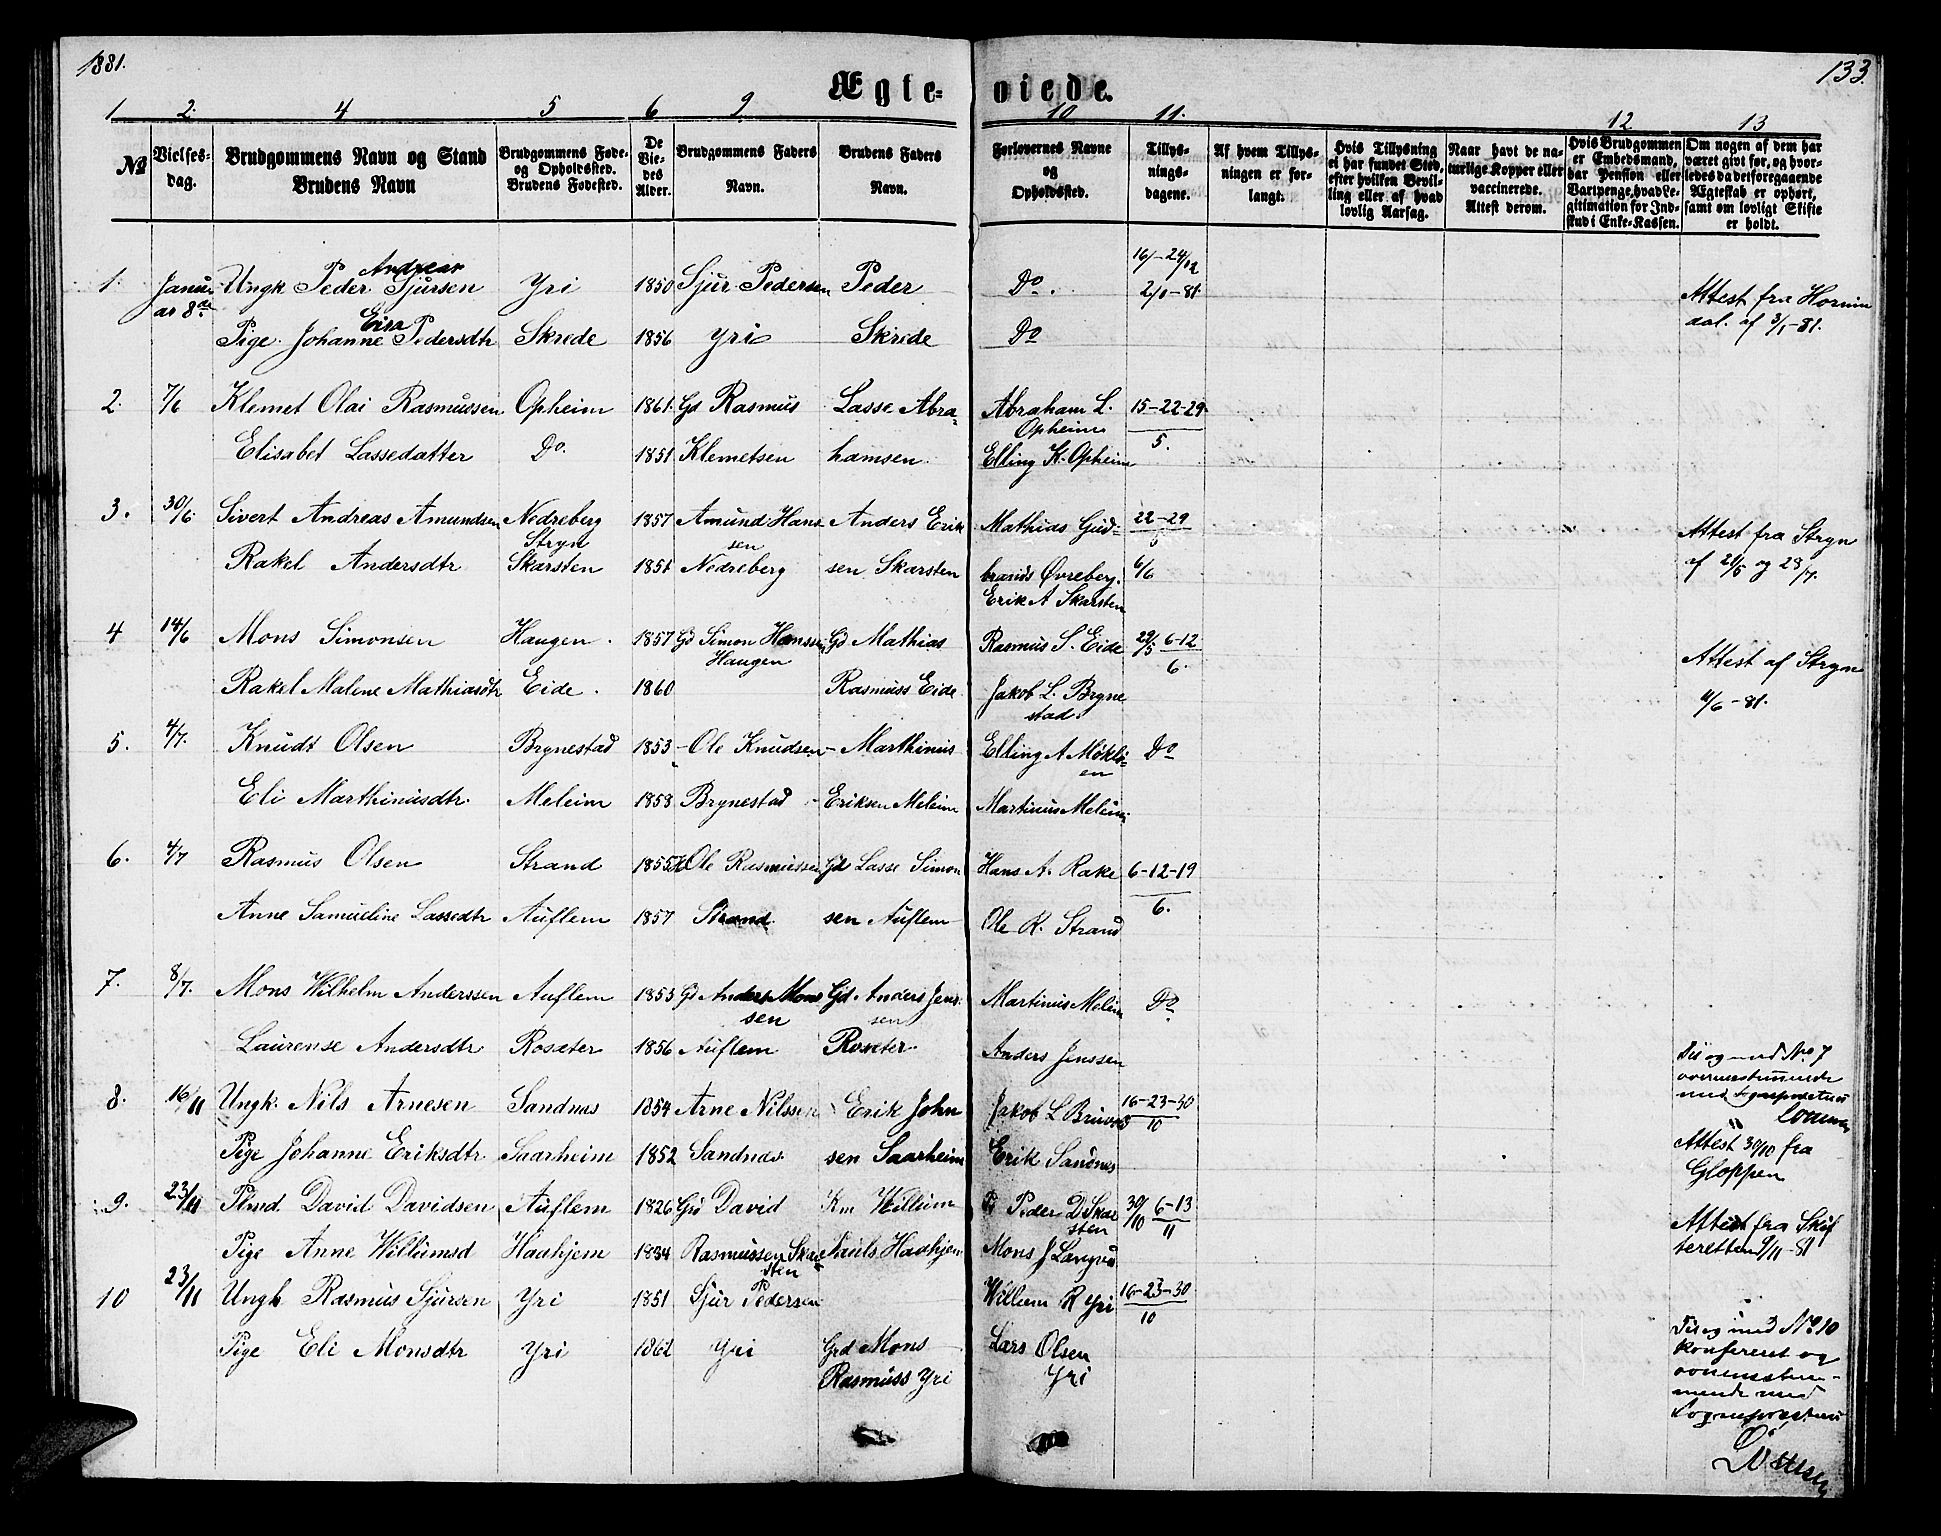 1881.
133
Ægte-
viede.
1 2. 4 5 6 9. 10 11. 12 13
№ Vielses-dag. Brudgommens Navn og Stand Brudens Navn Brudgommens Føde- og Opholdssted. Brudens Fødested. De Viedes Alder. Brudgommens Faders Navn. Brudens Faders Navn. Forlovernes Navne og Opholdssted. Tillysningsdagene. Af hvem Tillysningen er forlangt. Hvis Tillysning ei har fundet Sted, efter hvilken Bevilling eller af hvad lovlig Aarsag. Naar havt de naturlige Kopper eller vaccinerede. Attest derom. Hvis Brudgommen er Embedsmand, har Pension eller Vartpenge, hvad Legitimation for Indskud i Enke-Kassen. Om nogen af dem har været givt før, og hvorledes da det foregaaende Ægteskab er ophørt, samt om lovligt Skifte er holdt.
Andreas 16/-24/12
1. Janu- Ungk Peder Sjursen Yri 1850 Sjur Pedersen Peder Do. 2/1-81. Attest fra Hornin
ar 8de Eisa dal. af 3/1-81.
Pige Johanne Pedersdtr Skrede 1856 Yri Skrede Do
2. 7/6 Klemet Olai Rasmussen Opheim 1861 Gd Rasmus Lasse Abra- Abraham L. 15-22-29
Opheim 5.
Elisabet Lassedatter Do. 1851 Klemetsen hamsen. Elling K. Opheim
3. 30/6 Sivert Andreas Amundsen Nedreberg 1857 Amund Hans Anders Erik Mathias Gud- 22-29 Attest fra Stryn
Stryn sen 5
Rakel Andersdtr Skarsten 1851 Nedreberg sen Skarsten brands Øvreberg. 6/6 af 21/5 og 23/7.
Erik A Skarsten
4 14/6 Mons Simonsen Haugen. 1857 Gd Simon Hanssen Gd Mathias Rasmus S. Eide 29/5 6-12 Attest af Stryn
Haugen 6.
Rakel Malene Mathiasdtr Eide. 1860 Rasmuss Eide Jakob L. Bryne 4/6-81.
stad.
5. 4/7. Knudt Olsen Brynestad 1853 Ole Knudsen Marthinus Elling A Møklø- Do
en
Eli Marthinusdtr. Meleim 1858 Brynestad Eriksen Meleim Martinus Meleim
6. 4/7 Rasmus Olsen Strand 1855 Ole Rasmussen Gd Lasse Simon Hans A. Rake 6-12-19
6.
Anne Samueline Lassedtr Auflem 1857 Strand sen Auflem Ole R. Strand
7. 8/7. Mons Wilhelm Anderssen Auflem 1853 Gd Anders Mons Gd. Anders Jens Martinus Meleim Do
sen sen
Laurense Andersdtr Rosæter 1856 Auflem Rosæter. Anders Jenssen
Til og med No. 7
overensstemmende
med Sogneprestens
8. 16/11 Ungk. Nils Arnesen Sandnæs 1854 Arne Nilssen Erik John Jakob L Bruvo 16-23-30
10
Pige Johanne Eriksdtr. Saarheim 1852 Sandnæs sen Saarheim Erik Sandnes Attest 30/10 fra
Gloppen
9. 23/11 Plmd David Davidsen Auflem 1826 Grd David Km Willum G Peder D Skar 30/10 6-13
sten 11
Attest fra Skif
Pige Anne Willumsd Haahjem 1834 Rasmussen Skar Pauls Haahjem Mons J Langva teretten 9/11-81
sten
10 23/11 Ungk Rasmus Sjursen Yri 1851 Sjur Pedersen Willum R Yri 16-23-30
10
Pige Eli Monsdtr Yri 1862 Yri Grd Mons Lars Olsen
Rasmuss Yri Yri
Til og med No 10
konfereret og
overensstem-
mende med
Sogneprestens